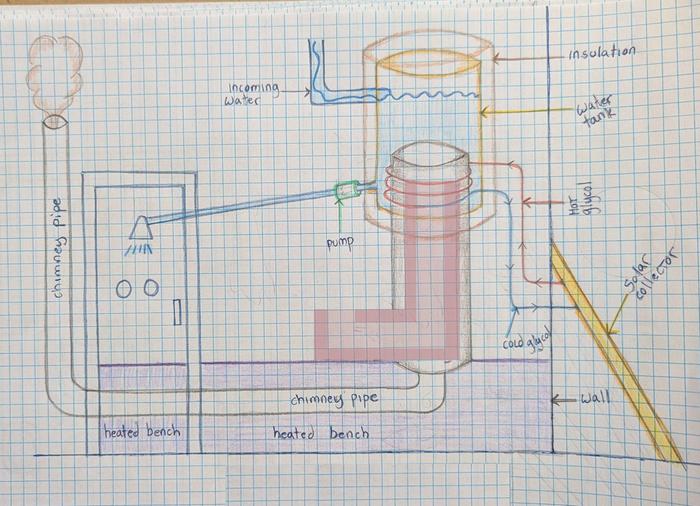 insulation
Incoming
water
water
tank
Hot
glycol
chimney pipe
pump
Solar
collector
cold glycol
chimney pipe
wall
heated bench
heated bench